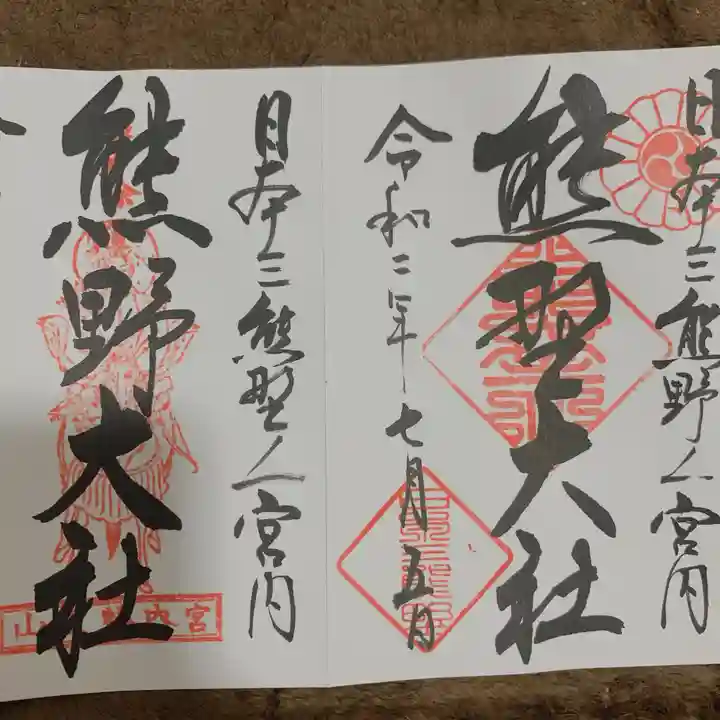 日本三熊野之宮内
熊野大社
令和二年七月五日
日本三熊野之宮内
熊野大社
令
宮内